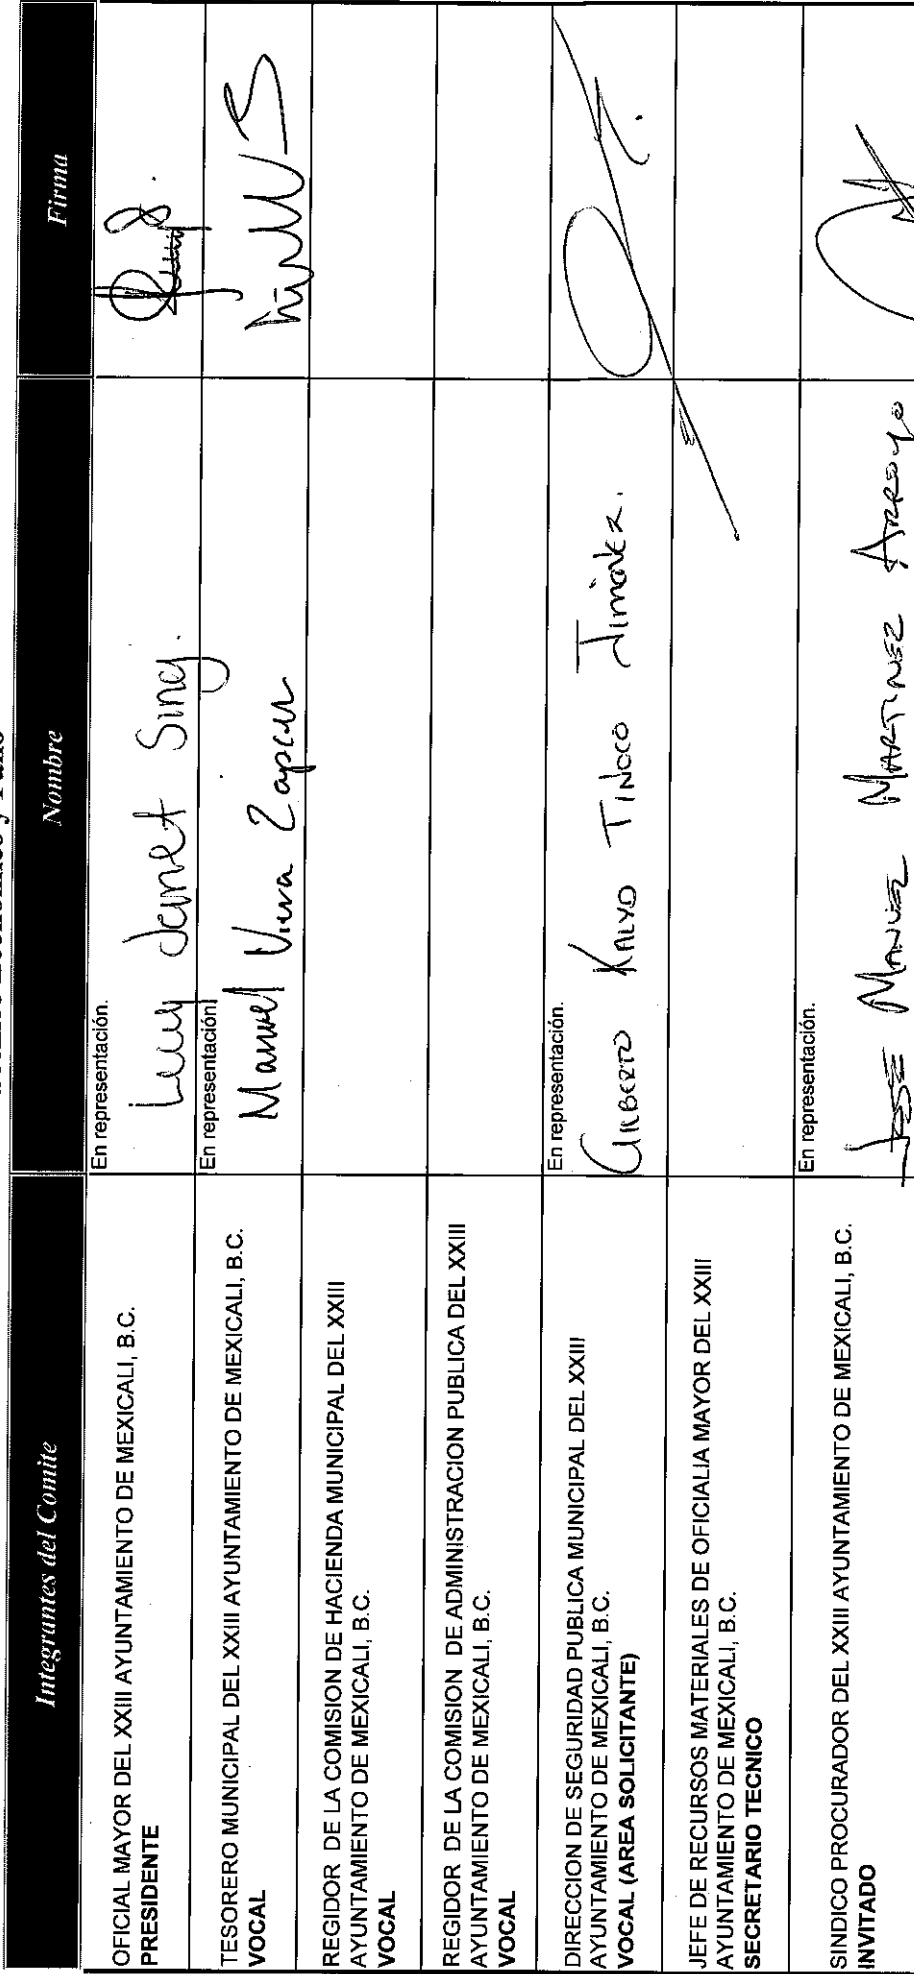 Integrantes del Comite
Nombre
Firma
OFICIAL MAYOR DEL XXIII AYUNTAMIENTO DE MEXICALI, B.C.
PRESIDENTE
En representación.
Janet Sing.
TESORERO MUNICIPAL DEL XXIII AYUNTAMIENTO DE MEXICALI, B.C.
VOCAL
En representación
Manuel
REGIDOR DE LA COMISION DE HACIENDA MUNICIPAL DEL XXIII
AYUNTAMIENTO DE MEXICALI, B.C.
VOCAL
REGIDOR DE LA COMISION DE ADMINISTRACION PUBLICA DEL XXIII
AYUNTAMIENTO DE MEXICALI, B.C.
VOCAL
DIRECCION DE SEGURIDAD PUBLICA MUNICIPAL DEL XXIII
AYUNTAMIENTO DE MEXICALI, B.C.
VOCAL (AREA SOLICITANTE)
En representación.
TINOCO Jiménez.
JEFE DE RECURSOS MATERIALES DE OFICIALIA MAYOR DEL XXIII
AYUNTAMIENTO DE MEXICALI, B.C.
SECRETARIO TECNICO
SINDICO PROCURADOR DEL XXIII AYUNTAMIENTO DE MEXICALI, B.C.
INVITADO
En representación.
JOSE MANUEL MARTINEZ ARROYO